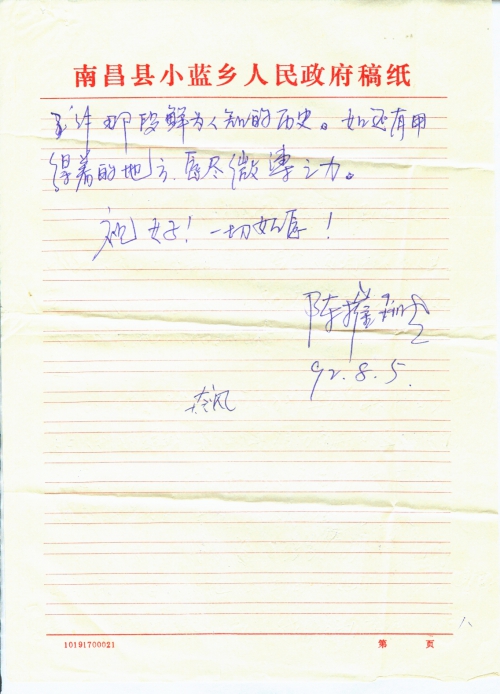 南昌县小蓝乡人民政府稿纸
那段鲜为人知的历史。如还有用
得着的地方、愿尽微薄之力。
祝好！一切如愿！
陈
92.8.5.
10191700021
第 页